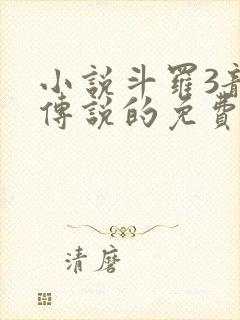 小說斗羅3
傳說的免費
清磨